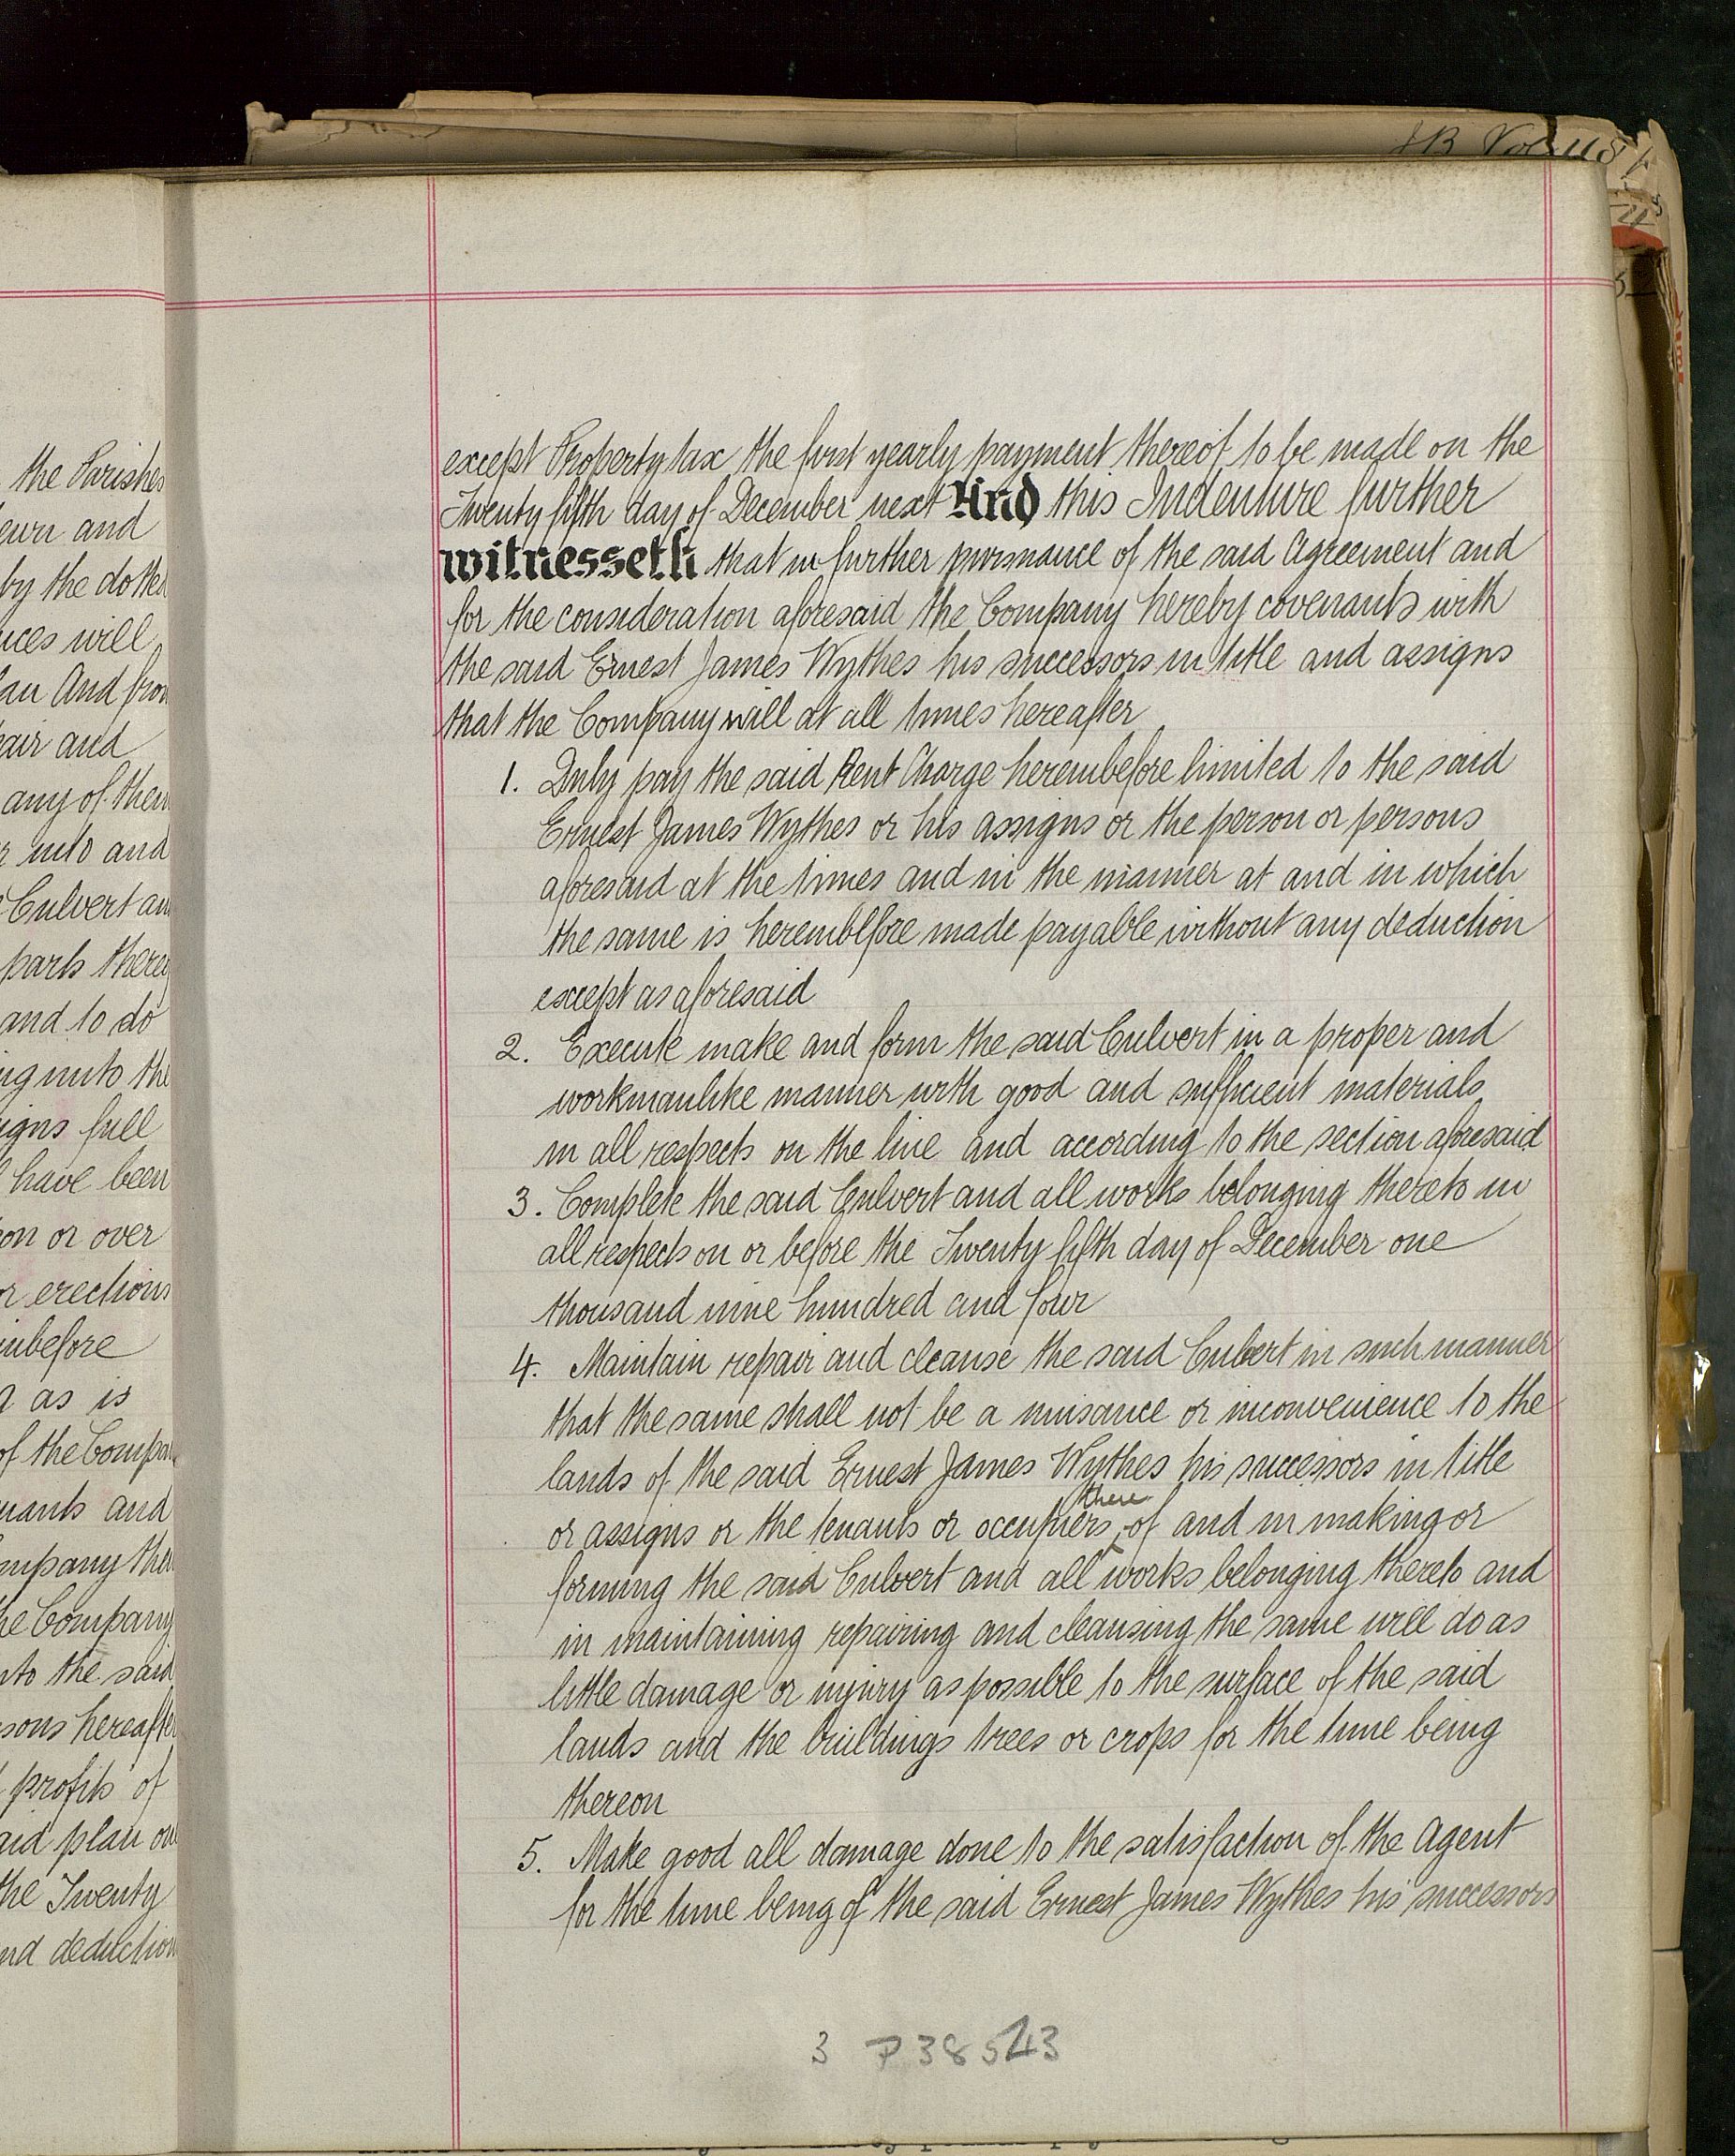 JB Vol 118
the Parishes
and
by the dotted
will
And from
and
any of them
into and
Culvert an
parts there
and to do
unto the
full
have been
on or over
or erections
inbefore
as is
of the Compa
and
the Company
to the said
hereafte
profits of
plan on
the Twenty
deduction
except Property tax the first yearly payment thereof to be made on the
Twenty fifth day of December next And this Indenture further
witnesseth that in further pursuance of the said Agreement and
for the consideration aforesaid the Company hereby covenants with
the said Ernest James Wythes his successors in title and assigns
that the Company will at all times hereafter
1. Duly pay the said Rent Charge hereinbefore limited to the said
Ernest James Wythes or his assigns or the person or persons
aforesaid at the times and in the manner at and in which
the same is hereinbefore made payable without any deduction
except as aforesaid
2. Execute make and form the said Culvert in a proper and
workmanlike manner with good and sufficient materials
in all respects on the line and according to the section aforesaid
3. Complete the said Culvert and all works belonging thereto in
all respects on or before the Twenty fifth day of December one
thousand nine hundred and four
4. Maintain repair and cleanse the said Culvert in such manner
that the same shall not be a nuisance or inconvenience to the
lands of the said Ernest James Wythes his successors in title
or assigns or the tenants or occupiers thereof and in making or
forming the said Culvert and all works belonging thereto and
in maintaining repairing and cleansing the same will do as
little damage or injury as possible to the surface of the said
lands and the buildings trees or crops for the time being
thereon
5. Make good all damage done to the satisfaction of the Agent
for the time being of the said Ernest James Wythes his successors
3 P38543